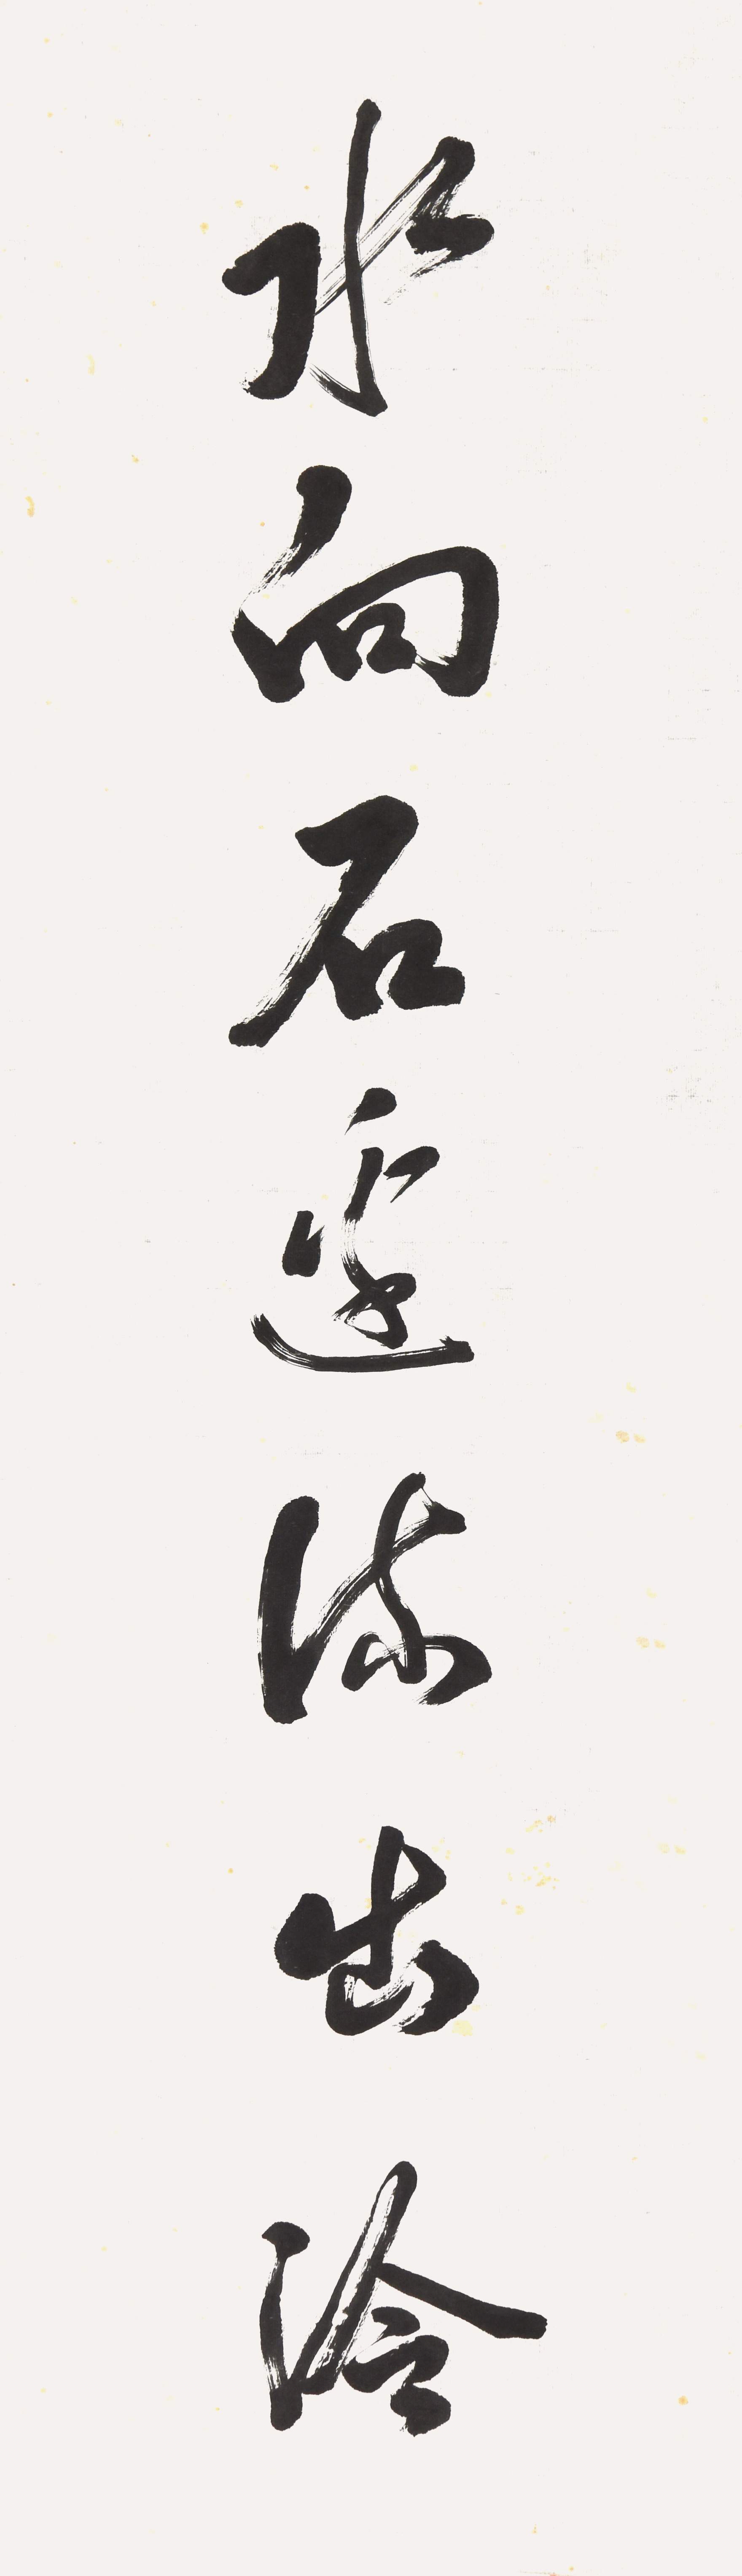 水向石邊流出冷